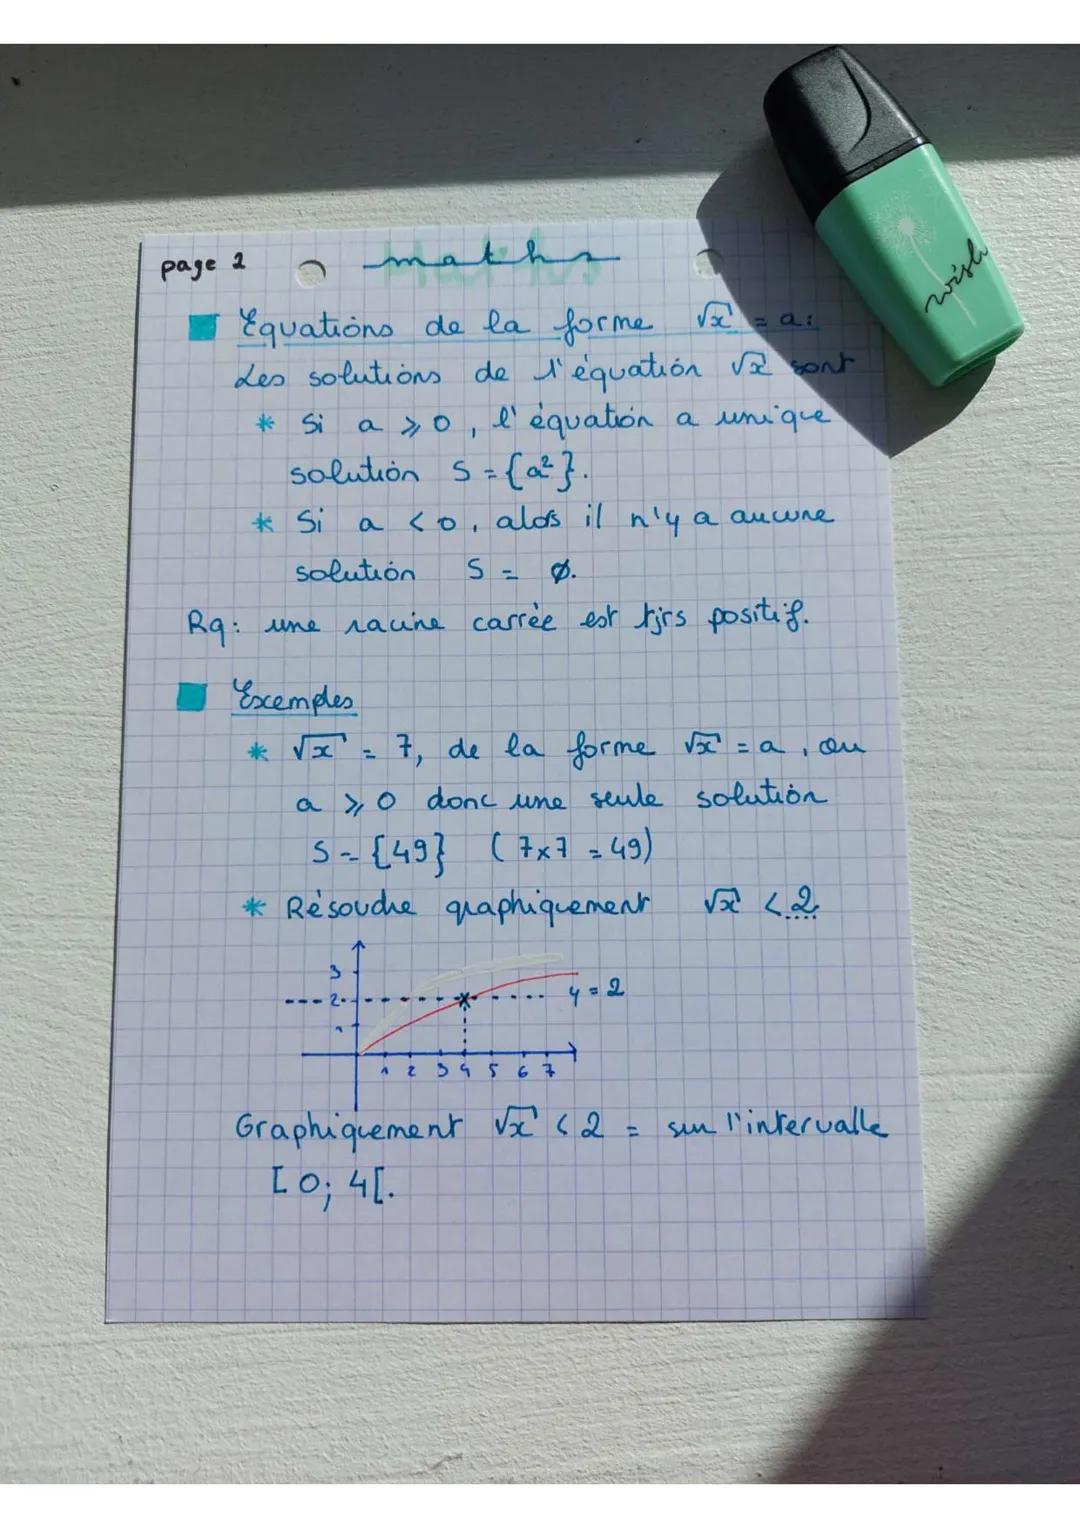 page 2
maths
Equations de la forme √x = a :
Les solutions de l'équation √x sont
* Si a ⩾ 0, l'équation a unique
solution S = {a²}.
* Si a < 0, alors il n'y a aucune
solution S = Ø.
Rq : une racine carrée est tjrs positif.
Exemples
* √x = 7, de la forme √x = a, ou
a ⩾ 0 donc une seule solution
S = {49} (7x7 = 49)
* Résoudre graphiquement √x < 2
3
2
1
y = 2
1 2 3 4 5 6 7
Graphiquement √x < 2 = sur l'intervalle
[0; 4[.
wish